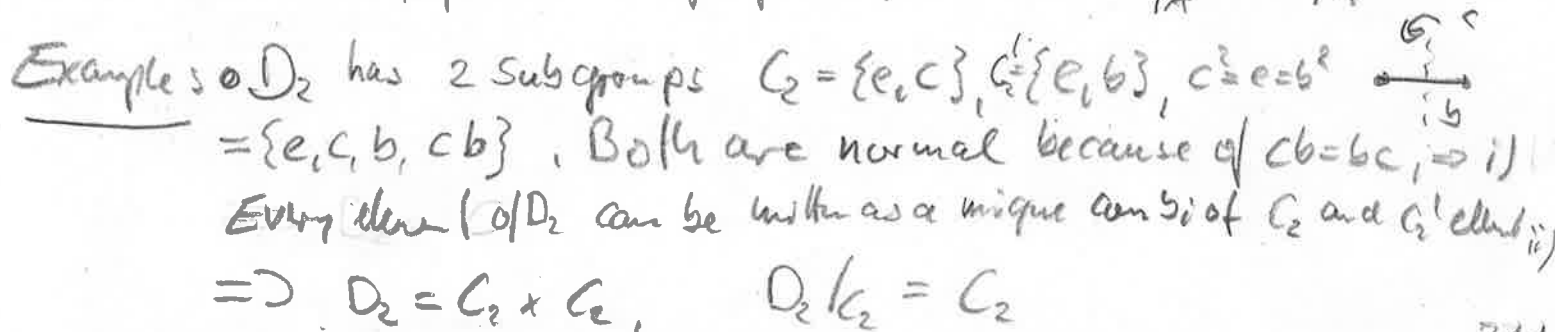 Examples • D₂ has 2 subgroups C₂ = {e, c}, C₂' = {e, b}, c² = e = b² c
= {e, c, b, cb}. Both are normal because of cb = bc, ⇒ i) b
Every element of D₂ can be written as a unique combi of C₂ and C₂' ii)
⇒ D₂ = C₂ × C₂, D₂/C₂ = C₂